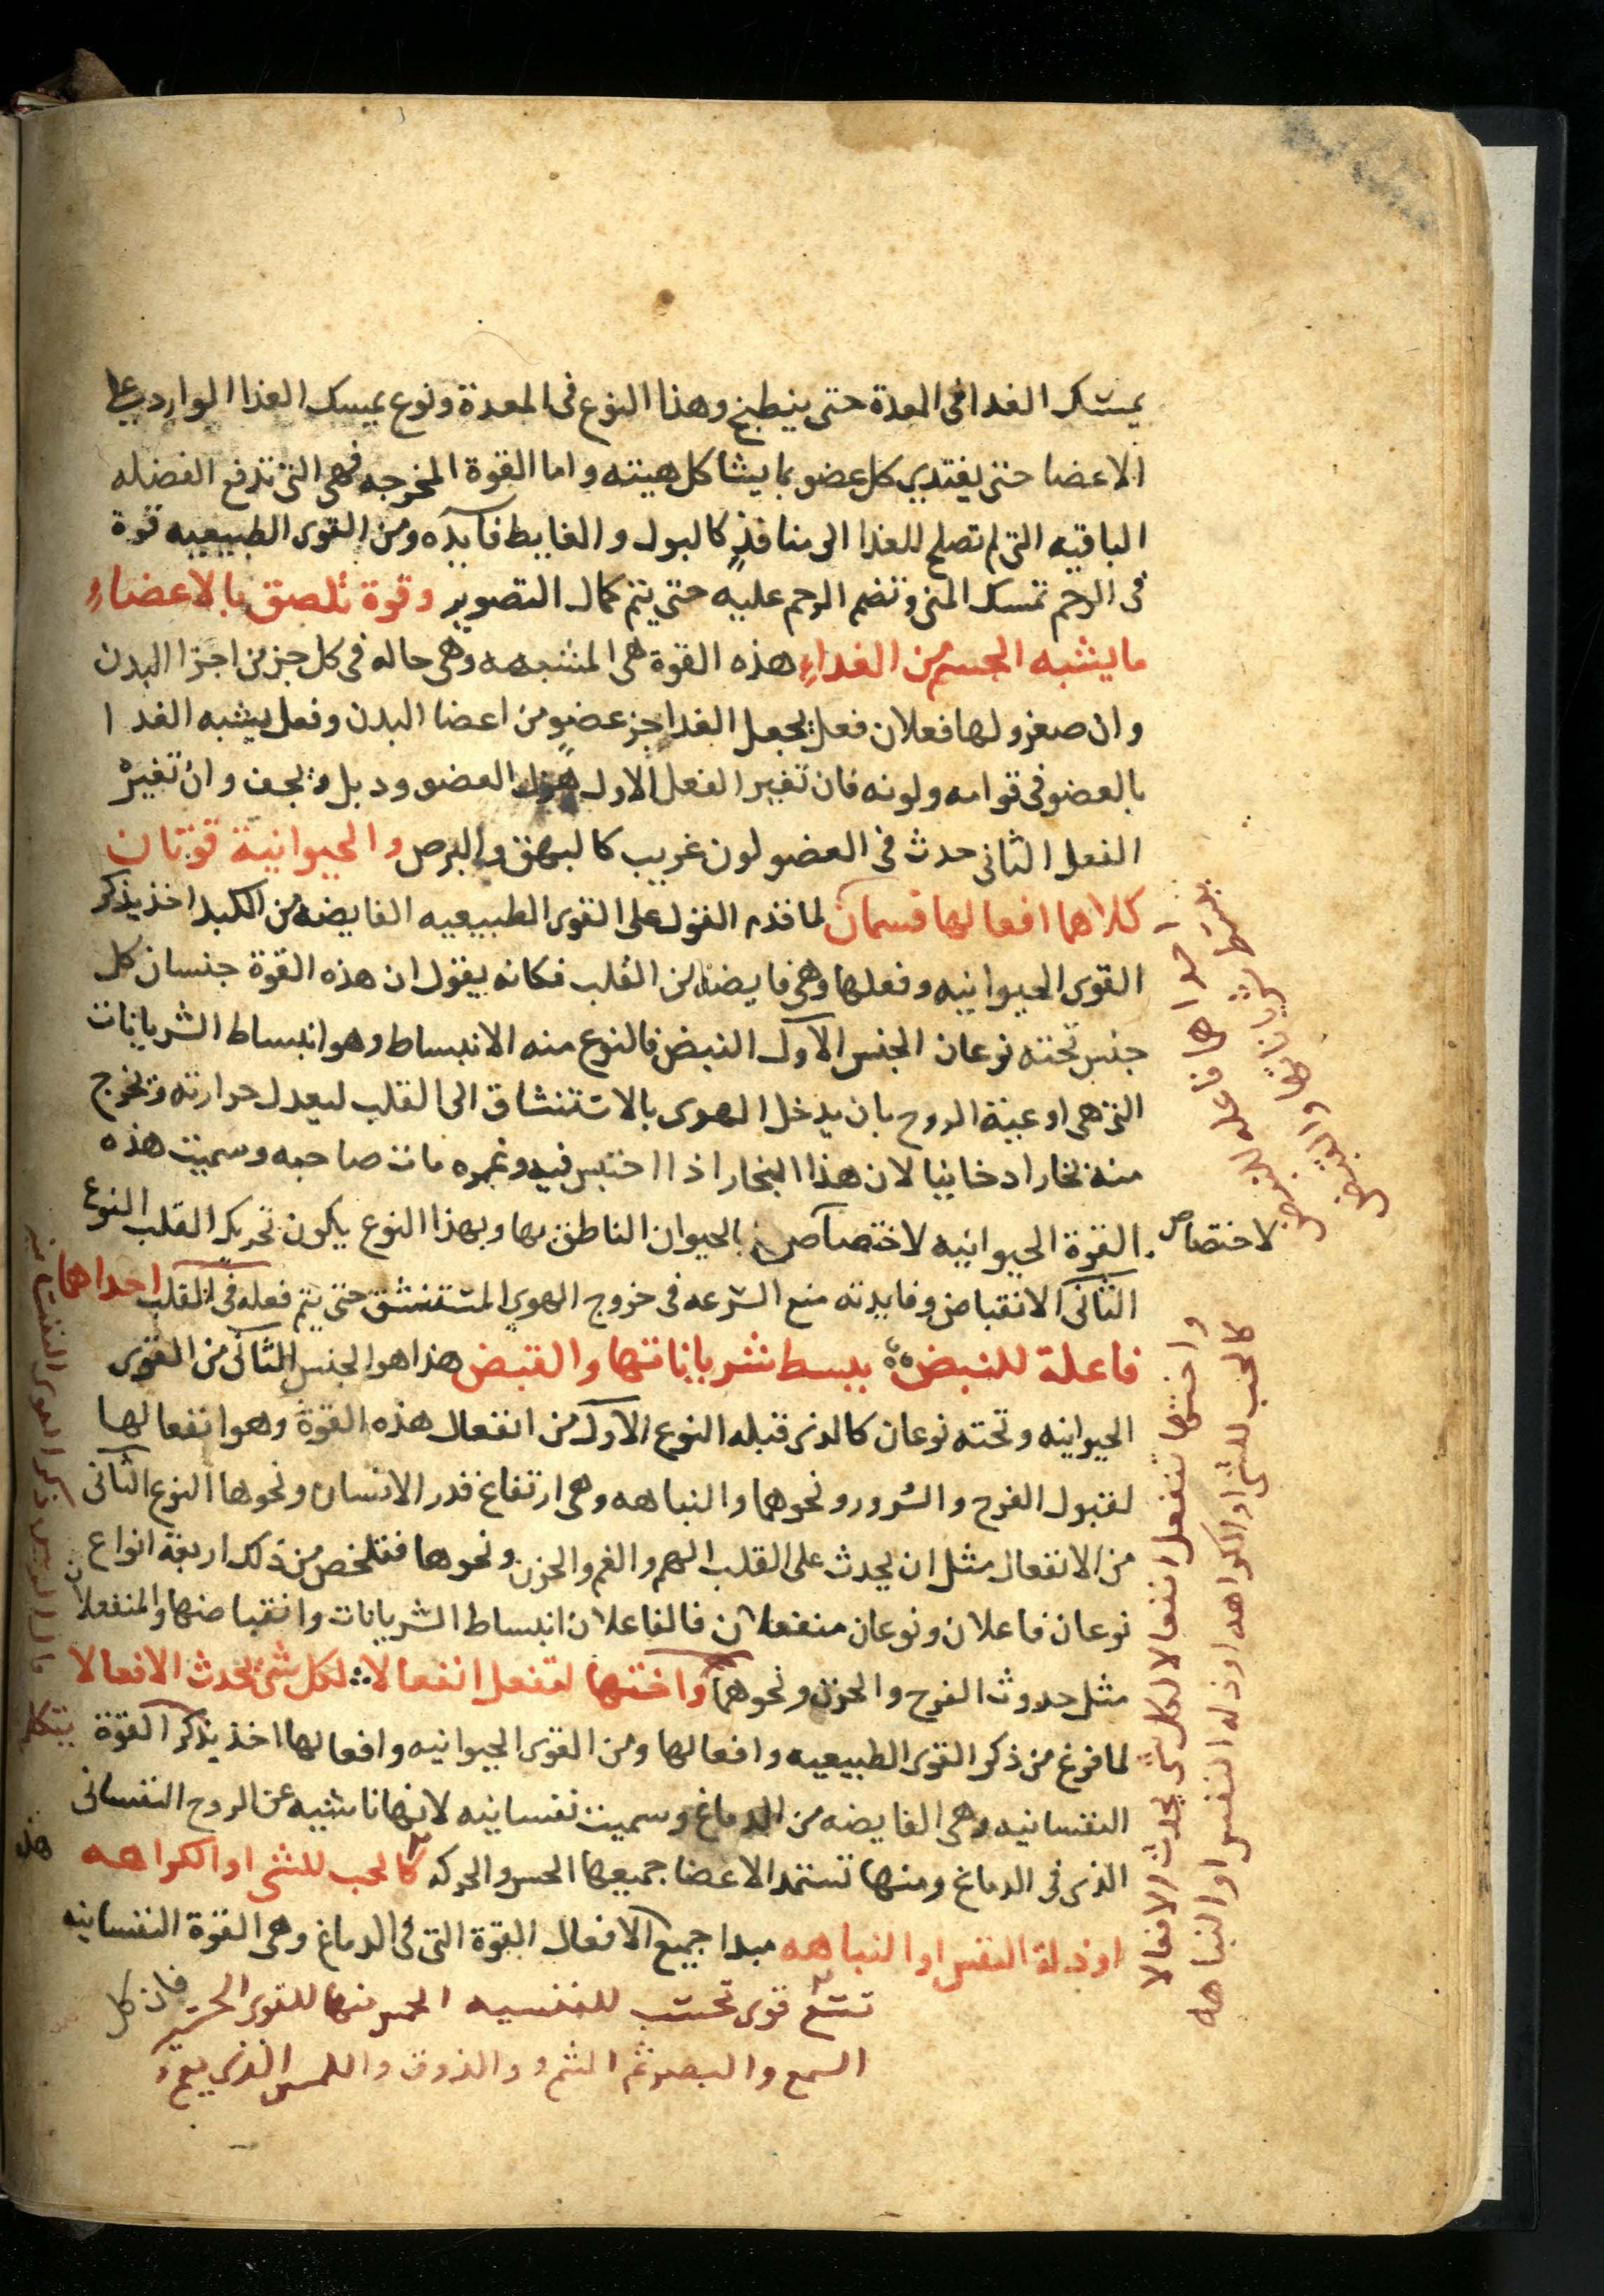 يمسك الغدا فى المعدة حتى ينطبخ وهذا النوع فى المعدة ونوع يمسك الغذا الوارد على
الاعضا حتى يغتدي كل عضو بما يشاكل هيته واما القوة المخرجه فهى التى تدفع الفضله
الباقيه التى لم تصلح للغذا الى منافذ كالبول والغايط فايده ومن القوى الطبيعيه قوة
فى الرحم تمسك المنى وتضم الرحم عليه حتى يتم كمال التصوير وقوة تلصق بالاعضاءِ
ما يشبه الجسم من الغداءِ هذه القوة هى المشبهه وهى حاله فى كل جز من اجزا البدن
وان صغر ولها فعلان فعل يجعل الغدا جز عضو من اعضا البدن وفعل يشبه الغدا
بالعضو فى قوامه ولونه فان تغير الفعل الاول هزل العضو ودبل ويجف وان تغير
الفعل الثانى حدث فى العضو لون غريب كالبهق والبرص والحيوانية قوتان
كلاهما افعالها قسمان لما قدم القول على القوى الطبيعيه الفايضه من الكبد اخذ يذكر
القوى الحيوانيه وفعلها وهى فايضه من القلب فكانه يقول ان هذه القوة جنسان كل
جنس تحته نوعان الجنس الاول النبض فالنوع منه الانبساط وهو انبساط الشريانات
التى هى اوعية الروح بان يدخل الهوى بالاستنشاق الى القلب ليعدل حرارته ويخرج
منه بخارا دخانيا لان هذا البخار اذا احتبس فيه وغمره مات صاحبه وسميت هذه
القوة الحيوانيه لاختصاص بالحيوان الناطق بها وبهذا النوع يكون تحريك القلب النوع
لاختصاص
الثانى الانقباض وفايدته منع السرعه فى خروج الهوى المستنشق حتى يتم فعله فى القلب احداهما
فاعلة للنبض ببسط شرياناتها والقبض هذا هو الجنس الثانى من القوى
الحيوانيه وتحته نوعان كالذى قبله النوع الاول من انفعال هذه القوة وهو انفعالها
لقبول الفرح والسرور ونحوهما والنباهه وهى ارتفاع قدر الانسان ونحوها النوع الثانى
من الانفعال مثل ان يحدث على القلب الهم والغم والحزن ونحوها فتلخص من ذلك اربعة انواع
نوعان فاعلان ونوعان منفعلان فالفاعلان انبساط الشريانات وانقباضها والمنفعلان
مثل حدوث الفرح والحزن ونحوهما واختها تفعل انفعالا لكل شى يحدث الافعالا
لما فرغ من ذكر القوى الطبيعيه وافعالها ومن القوى الحيوانيه وافعالها اخذ يذكر القوة
النفسانيه وهى الفايضه من الدماغ وسميت نفسانيه لانها ناشيه عن الروح النفسانى
الذى فى الدماغ ومنها تستمد الاعضا جميعها الحس والحركه كالحب للشى او الكراهه
او ذلة النفس او النباهه مبدا جميع الافعال القوة التى فى الدماغ وهى القوة النفسانيه
تسع قوى تحسب للنفسيه الخمس منها للقوى الحسيه
فان كل
السمع والبصر ثم الشم والذوق واللمس الذى يعم
احداها فاعله للنبض
ببسط شرياناتها والقبض
واختها تنفعل انفعالا لكل شى يحدث الافعالا
كالحب للشى او الكراهه او ذله النفس او النباهه